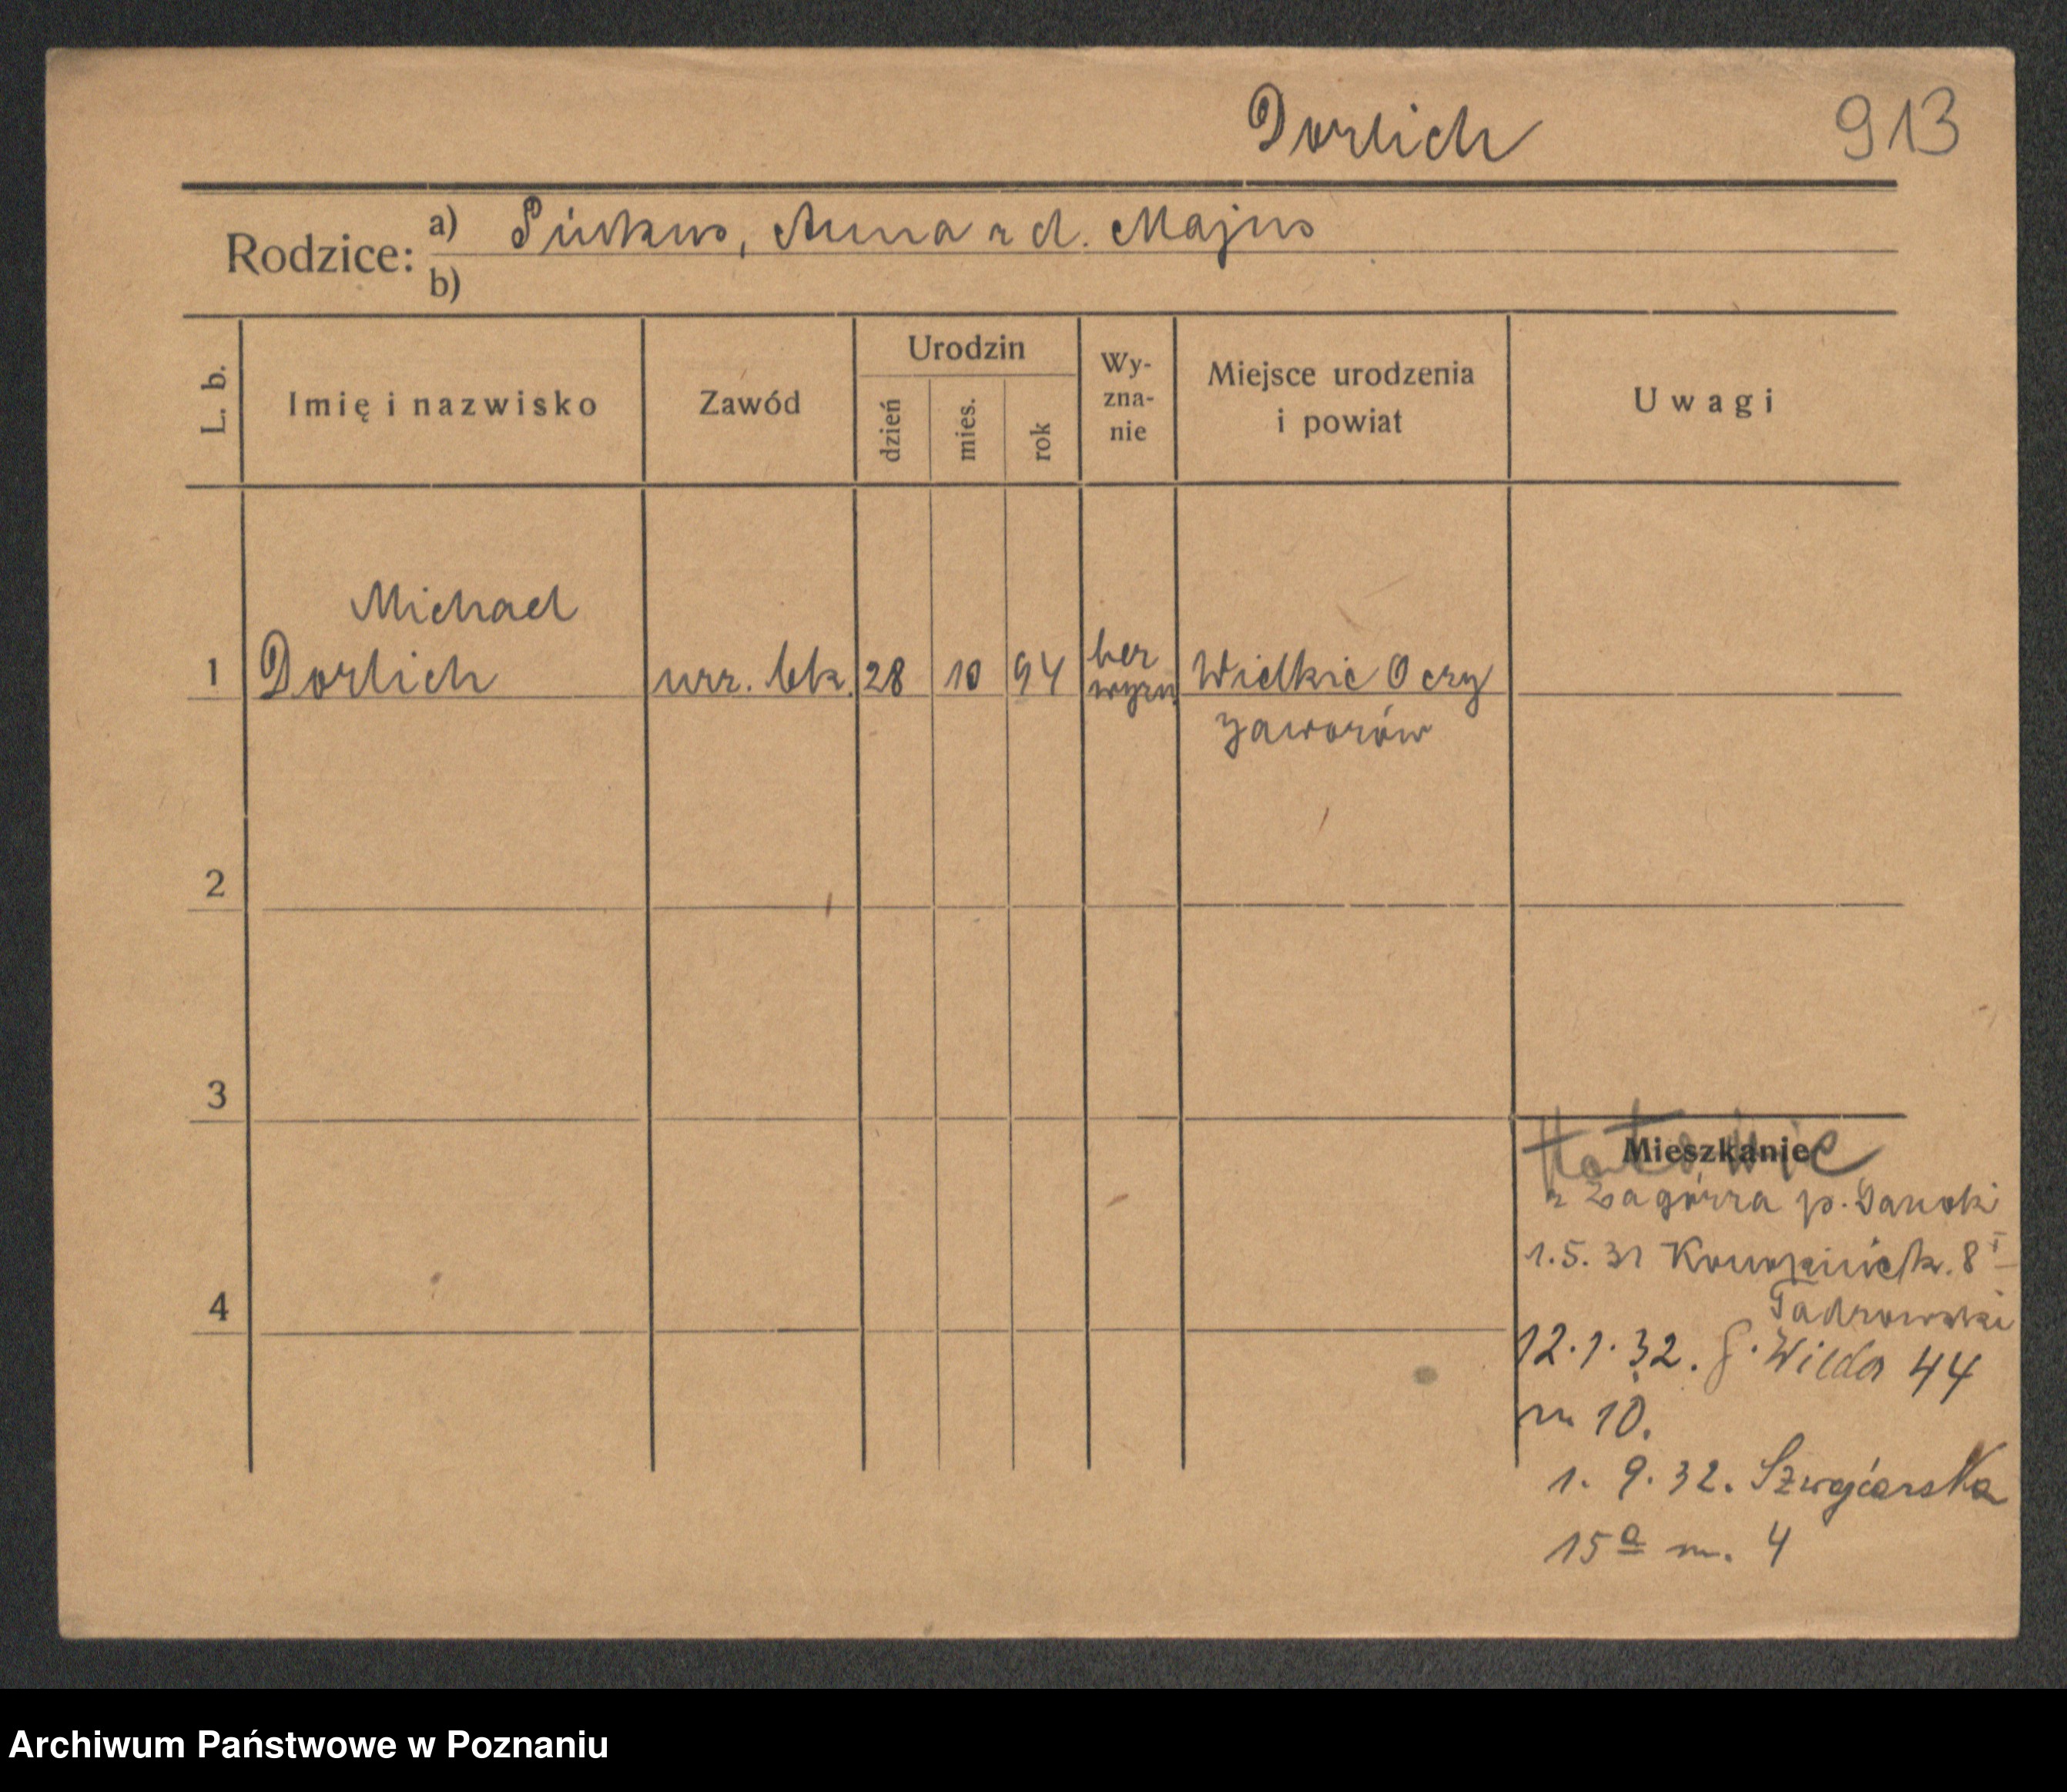 Dorlich 913
Rodzice: a) Pinkus, Anna z d. Majus
b)
L. b. Imię i nazwisko Zawód Urodzin dzień mies. rok Wy-zna-nie Miejsce urodzenia i powiat Uwagi
Michael
1 Dorlich urz. bk. 28 10 94 bez wyzn. Wielkie Oczy
Jaworów
2
3
Mieszkanie
z Zagórza p. Sanoki
1.5.31 8 I
4
12.1.32. G. Wilda 44
m 10.
1. 9. 32. Szwajcarska
15a m. 4
Archiwum Państwowe w Poznaniu